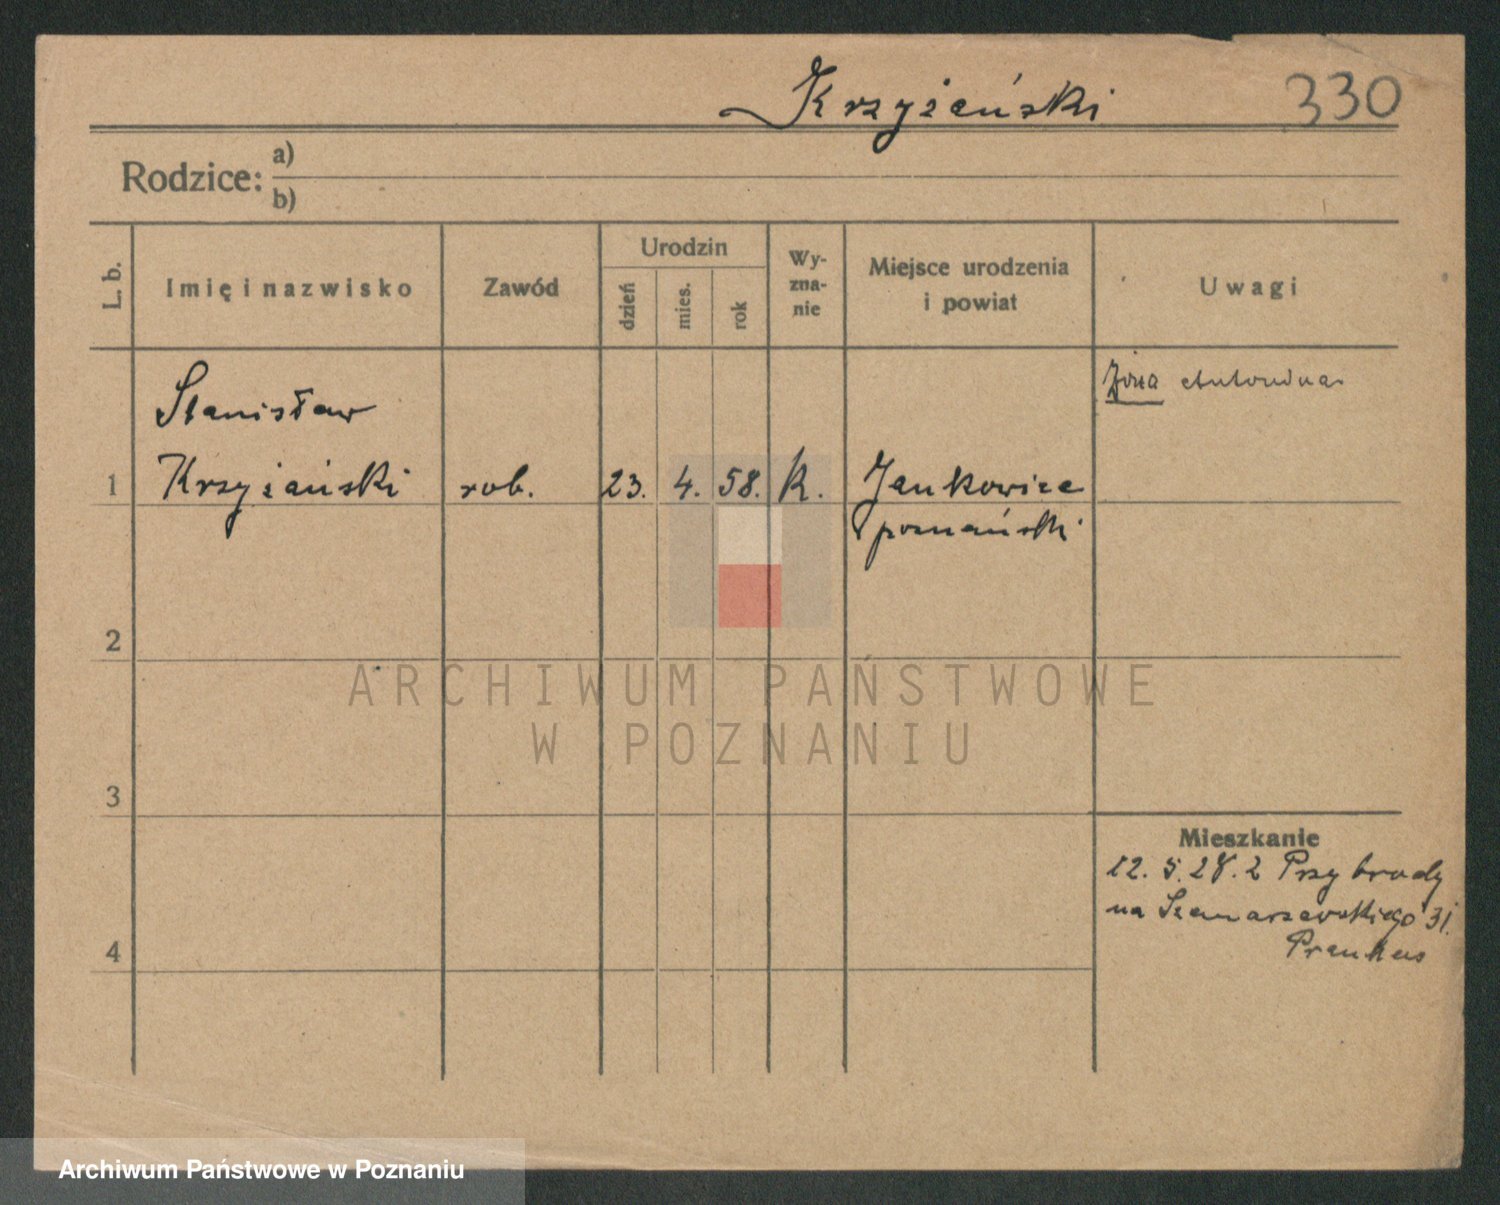 Krzyżański
330
Rodzice: a)
b)
L. b.
Imię i nazwisko
Zawód
Urodzin
dzień
mies.
rok
Wy-
zna-
nie
Miejsce urodzenia
i powiat
Uwagi
Żona Antonina
Stanisław
1 Krzyżański rob. 23. 4. 58. K. Jankowice
poznański
2
3
4
Mieszkanie
12. 5. 28. z Przybrody
na Szamarzewskiego 31.
ARCHIWUM PAŃSTWOWE
W POZNANIU
Archiwum Państwowe w Poznaniu